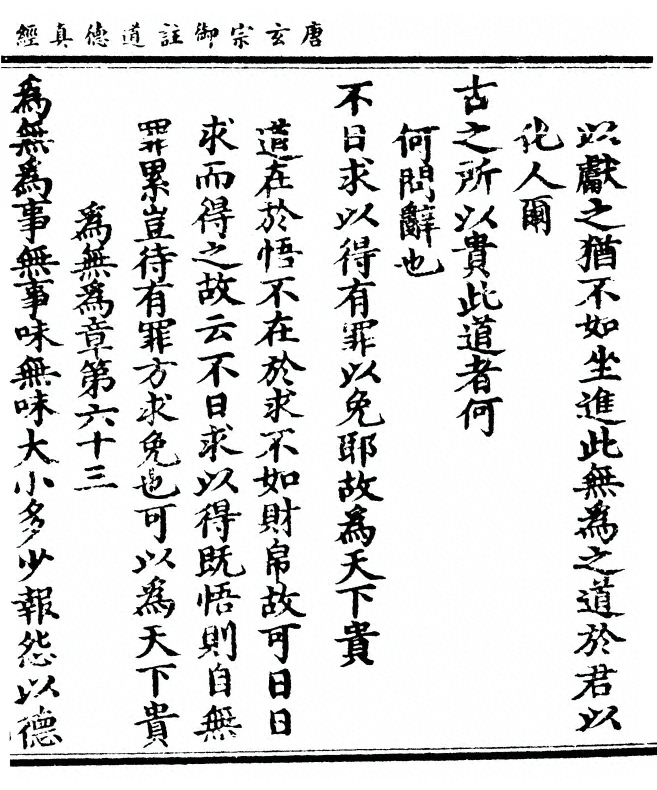 唐玄宗御註道德真經
以獻之猶不如坐進此無為之道於君以
化人爾
古之所以貴此道者何
何問辭也
不日求以得有罪以免耶故為天下貴
道在於悟不在於求不如財帛故可日日
求而得之故云不日求以得既悟則自無
罪累豈待有罪方求免也可以為天下貴
為無為章第六十三
為無為事無事味無味大小多少報怨以德